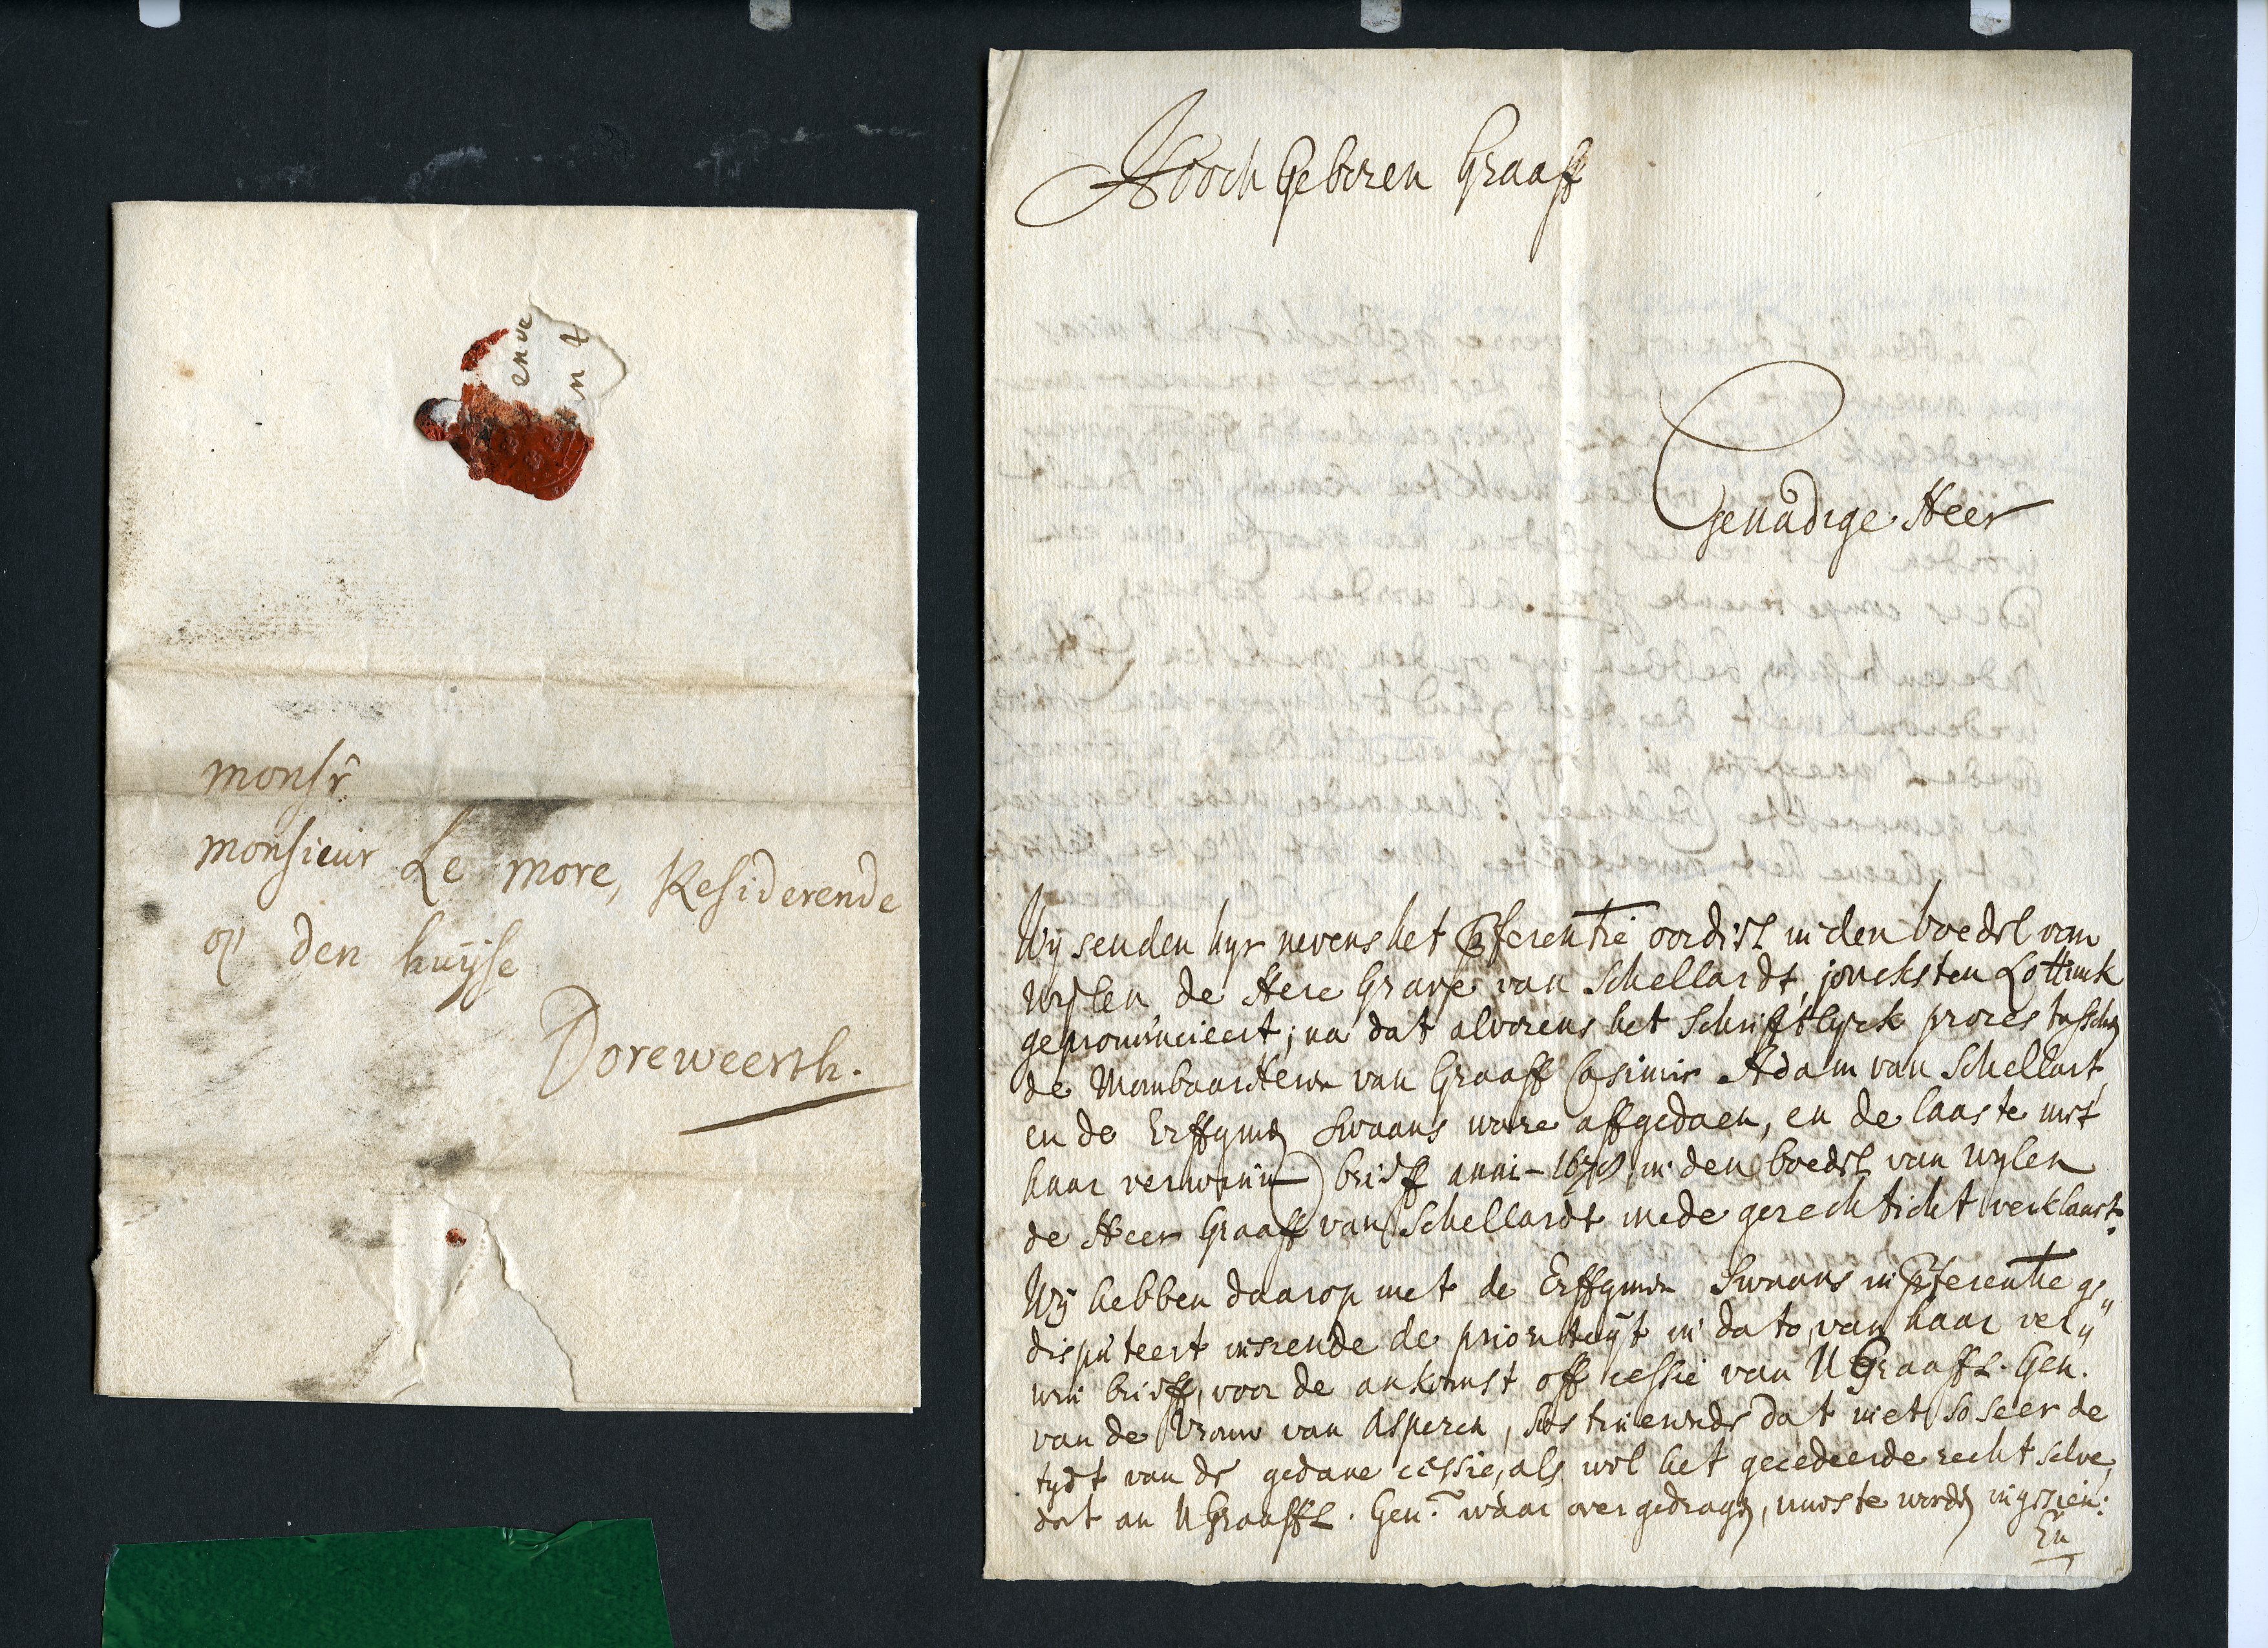 enve
n t
monsr.
monsieur Le more, Residerende
op den huijse
Doreweerth.
Hooch Geboren Graaff
Genadige Heer
Wij senden hijr nevens het pferentie oordeel in den boedel van
wijlen de Here Grave van Schellardt, joncksten Lottinck
gepronuncieert; na dat alvorens het Schriftlijck proces tusschen
de Momboar Heren van Graaff Casimir Adam van Schellart
en de Erffgen Swaans ware affgedaen, en de laaste met
haar verwin brieff anni in den boedel van wijlen
de Heer Graaff van Schellardt mede gerechticht verklaart.
Wij hebben daarop met de Erffgmen Swaans in pferentie ge„
disputeert de prioriteijt in dato van haar ver„
win brieff, voor de ankomst off cessie van U Graaffl. Gen.
van de Vrouw van Asperen, sustineerende dat niet so seer de
tijdt van de gedane cessie, als wel het gecedeerde recht selve,
dat an U Graaffl. Gen. waar overgedragen, moste worden ingesien:
En